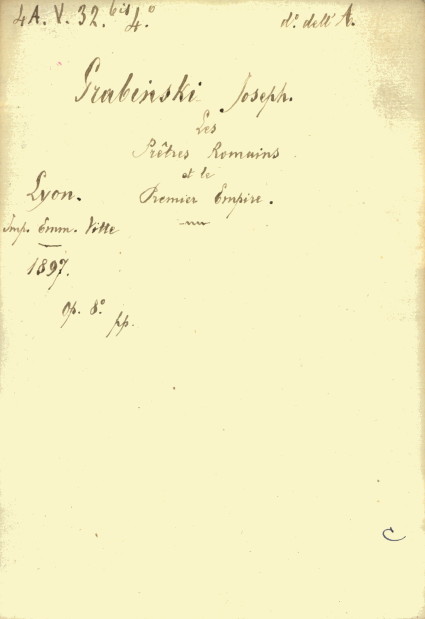 4A. V. 32. bis 4.° d.° dell'A.
Grabinski Joseph.
Les
Prêtres Romains
et le
Premier Empire.
Lyon.
Imp. Emm. Vitte
1897.
op. 8.° pp.
C